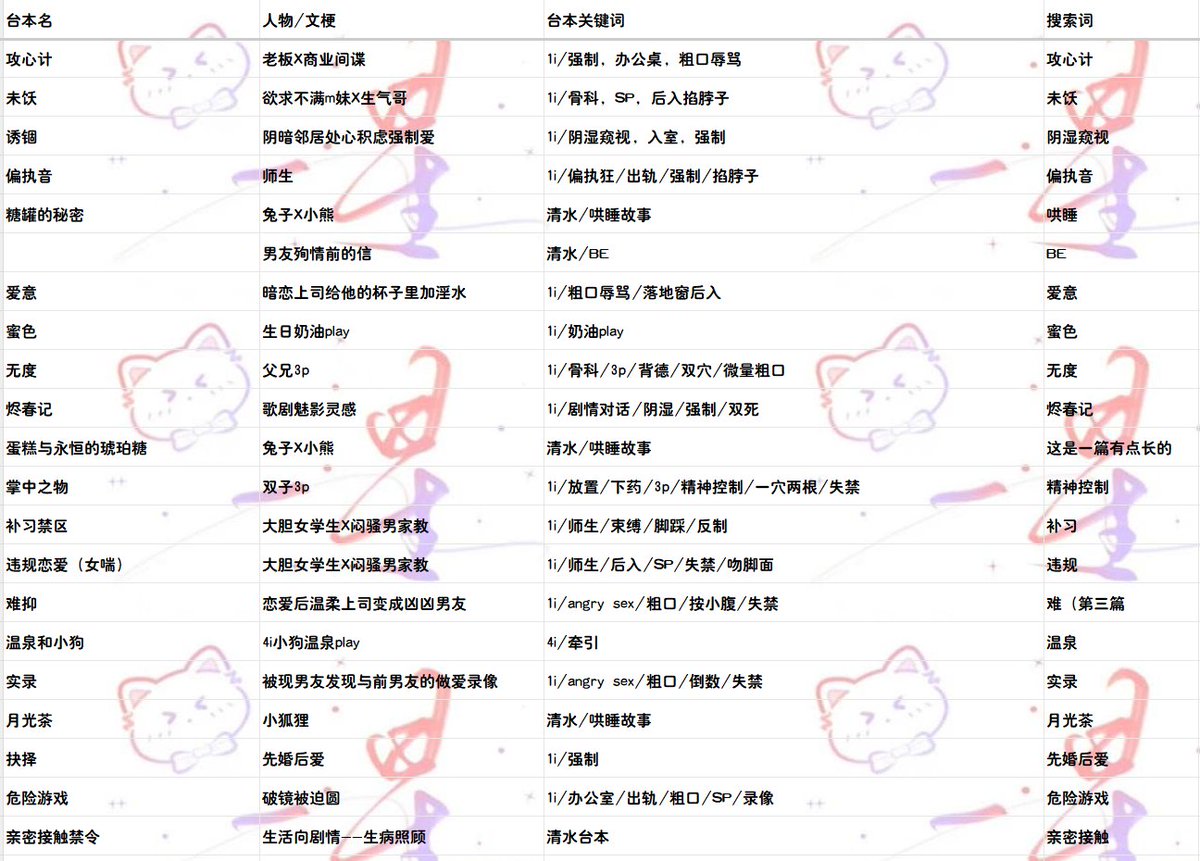 台本名 人物/文梗 台本关键词 搜索词
攻心计 老板X商业间谍 1i/强制，办公桌，粗口辱骂 攻心计
未饫 欲求不满m妹X生气哥 1i/骨科，SP，后入掐脖子 未饫
诱锢 阴暗邻居处心积虑强制爱 1i/阴湿窥视，入室，强制 阴湿窥视
偏执音 师生 1i/偏执狂/出轨/强制/掐脖子 偏执音
糖罐的秘密 兔子X小熊 清水/哄睡故事 哄睡
男友殉情前的信 清水/BE BE
爱意 暗恋上司给他的杯子里加淫水 1i/粗口辱骂/落地窗后入 爱意
蜜色 生日奶油play 1i/奶油play 蜜色
无度 父兄3p 1i/骨科/3p/背德/双穴/微量粗口 无度
烬春记 歌剧魅影灵感 1i/剧情对话/阴湿/强制/双死 烬春记
蛋糕与永恒的琥珀糖 兔子X小熊 清水/哄睡故事 这是一篇有点长的
掌中之物 双子3p 1i/放置/下药/3p/精神控制/一穴两根/失禁 精神控制
补习禁区 大胆女学生X闷骚男家教 1i/师生/束缚/脚踩/反制 补习
违规恋爱（女喘） 大胆女学生X闷骚男家教 1i/师生/后入/SP/失禁/吻脚面 违规
难抑 恋爱后温柔上司变成凶凶男友 1i/angry sex/粗口/按小腹/失禁 难（第三篇
温泉和小狗 4i小狗温泉play 4i/牵引 温泉
实录 被现男友发现与前男友的做爱录像 1i/angry sex/粗口/倒数/失禁 实录
月光茶 小狐狸 清水/哄睡故事 月光茶
抉择 先婚后爱 1i/强制 先婚后爱
危险游戏 破镜被迫圆 1i/办公室/出轨/粗口/SP/录像 危险游戏
亲密接触禁令 生活向剧情——生病照顾 清水台本 亲密接触